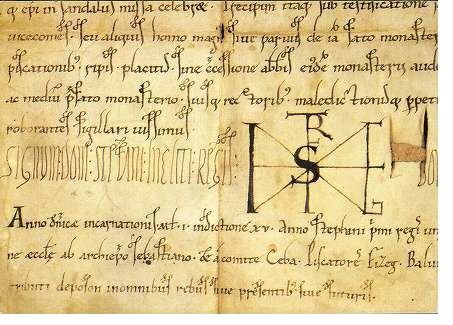 q epi in sandaliis missa celebrare. Precipim itaq sub testificatione
vicecomes. seu aliquis homo magn sive parvus de ia fato monaster
piscationib. ripis. placitis. sine ccessione abbis monasterii aude
ac mediu pfato monasterio. suisq rectoribus. ppet
roborantes sigillari iussimus
SIGNUM DOMNI STEPHANI INCLITI REGIS
Anno dnice incarnationis. indictione xv. Anno Stephani pmi regis un
ne eccle ab archiepo sebastiano. & a comite Ceba. Piscatore Fizeg. Balv
inomnibus rebus sive presentibus sive futuris.